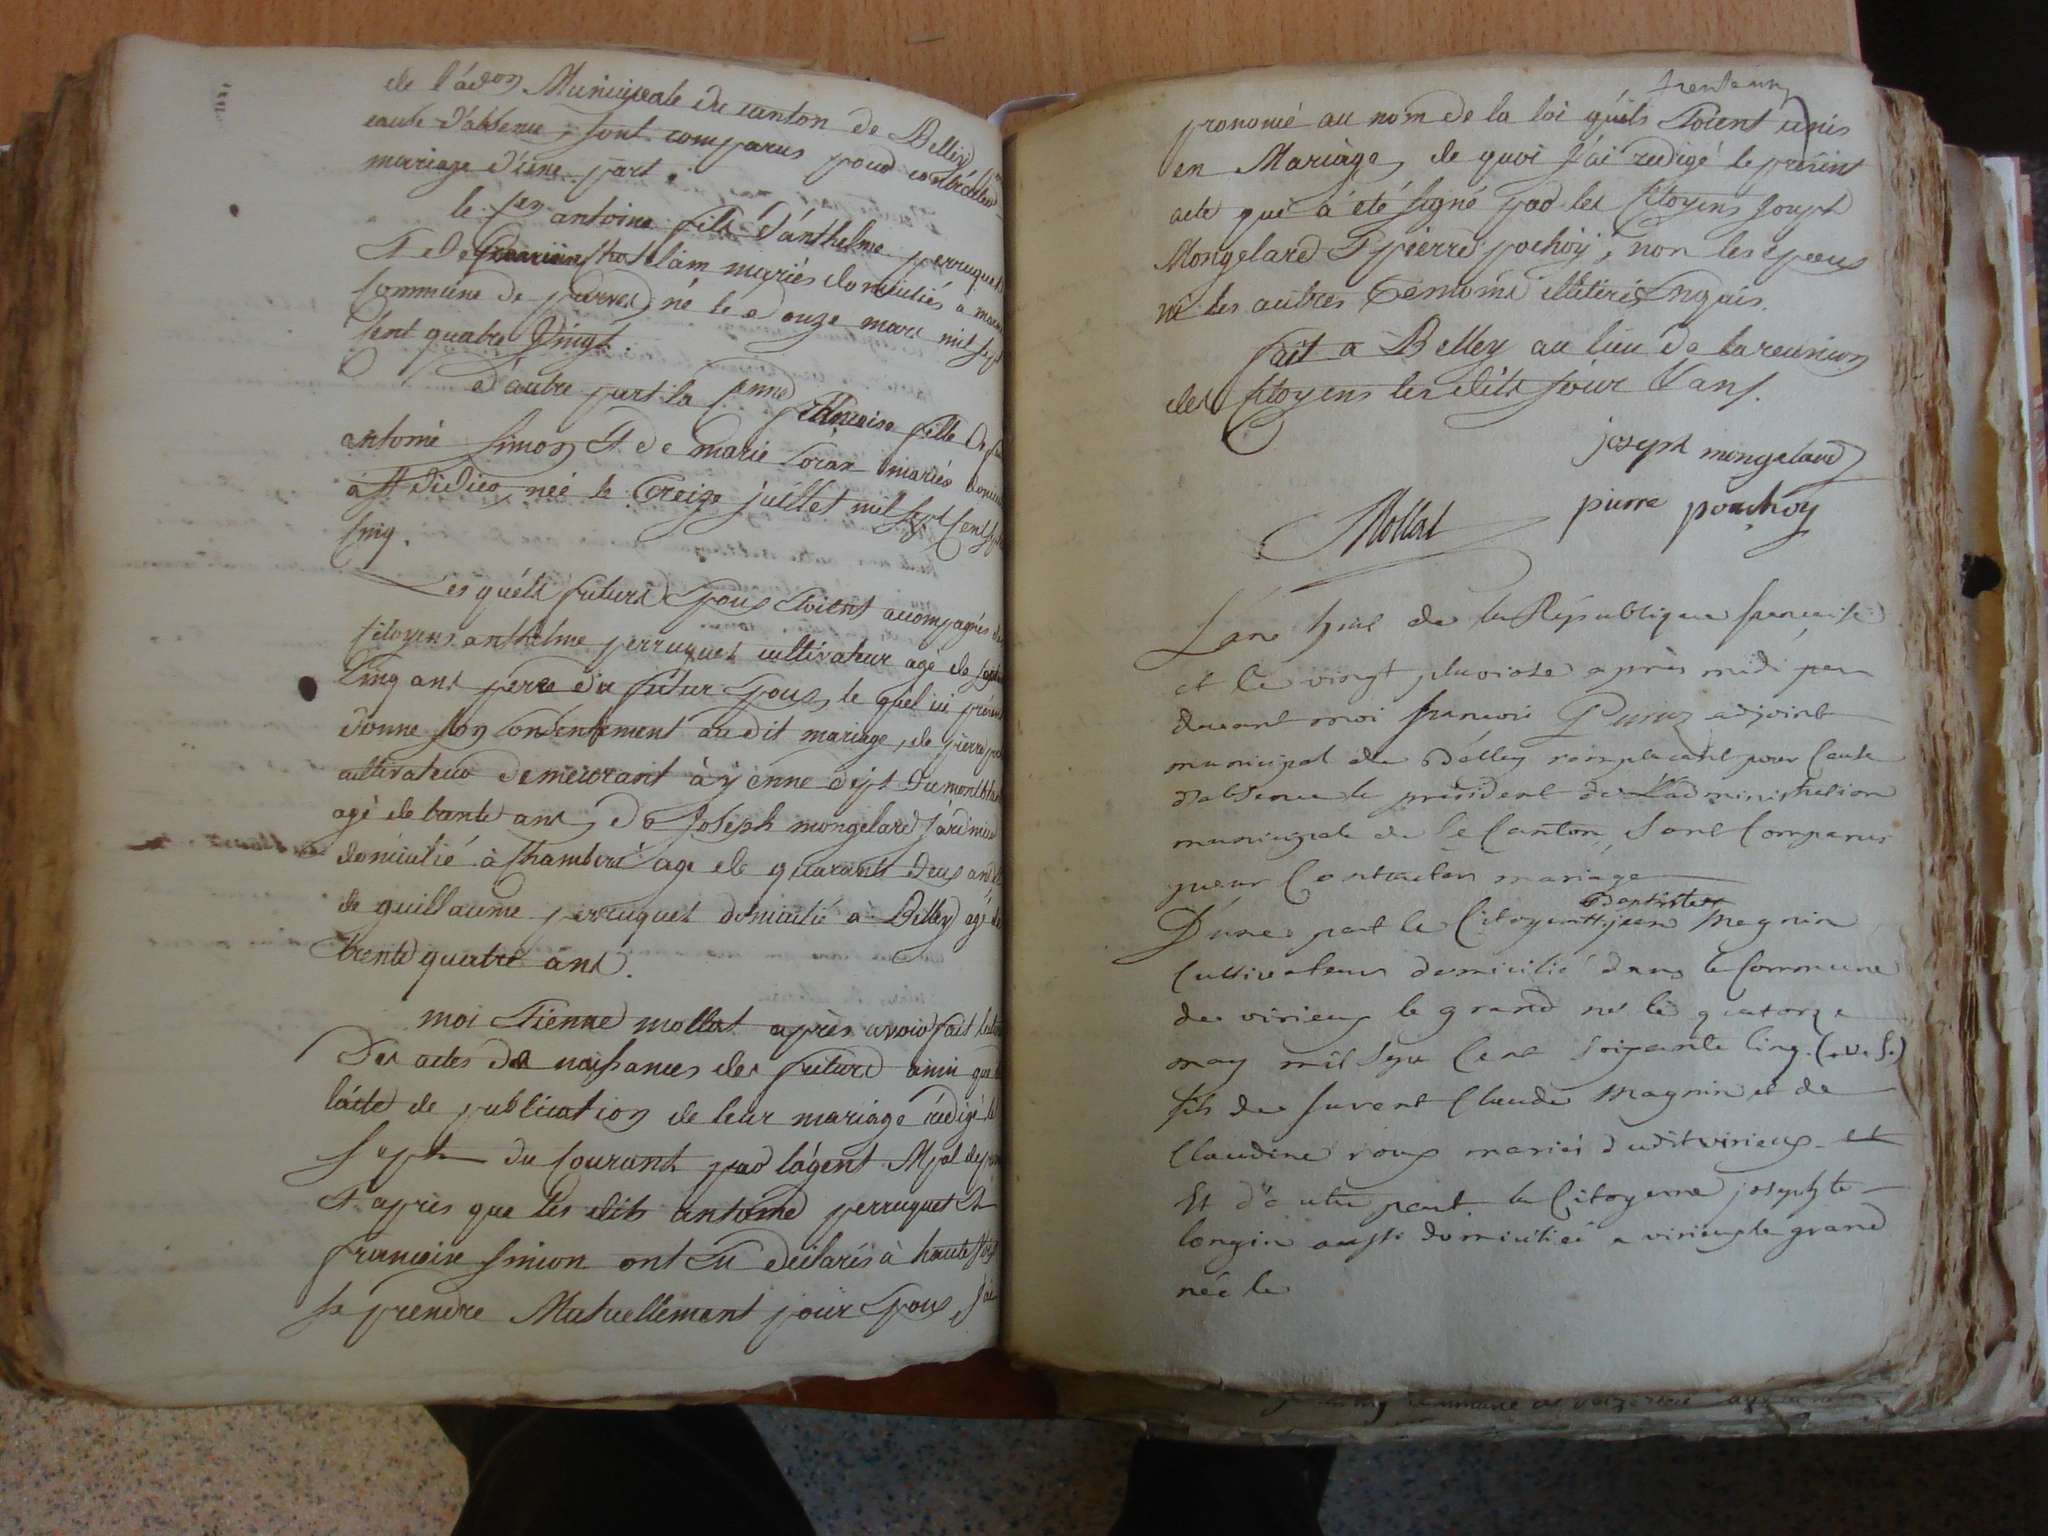 de l'ad.on Municipale du canton de Belley
cause d'absence, sont comparus pour contracter
mariage d'une part.
le C.en antoine fils d'anthelme perruquet
Et de mariés domiciliés à
Commune de parves, né le douze mars mil sept
Cent quatre Vingt.
d'autre part la C.enne françoise fille de
antoine Simon Et de marie mariés
à St didier, née le Treize juillet mil sept Cent
Cinq.
Lesquels futurs Epoux Etoient accompagnés des
Citoyens anthelme perruquet cultivateur agé de
Cinq ans père du futur Epoux, le quel ici présent
donne Son Consentement audit mariage, de pierre
cultivateur demeurant à yenne dept. Du montblanc
agé de trente ans, de Joseph mongelard jardinier
domicilié à Chamberi agé de quarante Deux ans
de guillaume perruquet domicilié à Belley agé de
trente quatre ans.
moi Etienne mollat après avoir fait
Des actes de naissances des futurs ainsi que
l'acte de publication de leur mariage rédigé le
Sept du Courant par l'agent Mpal de
Et après que les dits antoine perruquet Et
françoise Simon ont Eu déclarés à haute Voix
se prendre Mutuellement pour Epoux, j'ai
trente un
prononcé au nom de la loi qu'ils Etoient unis
en Mariage, de quoi J'ai rédigé le présent
acte qui à été signé par les Citoyens Joseph
Mongelard Et pierre pochoy, non les Epoux
ni les autres Temoins illitérés Enquis.
fait a Belley au lieu de la reunion
des Citoyens les dits jour Et an.
joseph mongelard
pierre pouchoy
Mollat
L'an huit de la République francaise
et le vingt pluviose après midi par
devant moi francois adjoint
municipal de Belley remplacant pour Cause
d'absence le président de L'administration
municipale de Ce Canton, Sont Comparus
pour Contracter mariage
Baptiste
D'une part le Citoyen jean Magnin
Cultivateur domicilié dans la Commune
de virieux le grand né le quatorze
may mil sept Cent soixante Cinq (v. s.)
fils de Claude Magnin et de
Claudine roux mariés dudit virieux et
Et d'autre part la Citoyenne josephte
longin aussi domiciliée a virieux le grand
née le